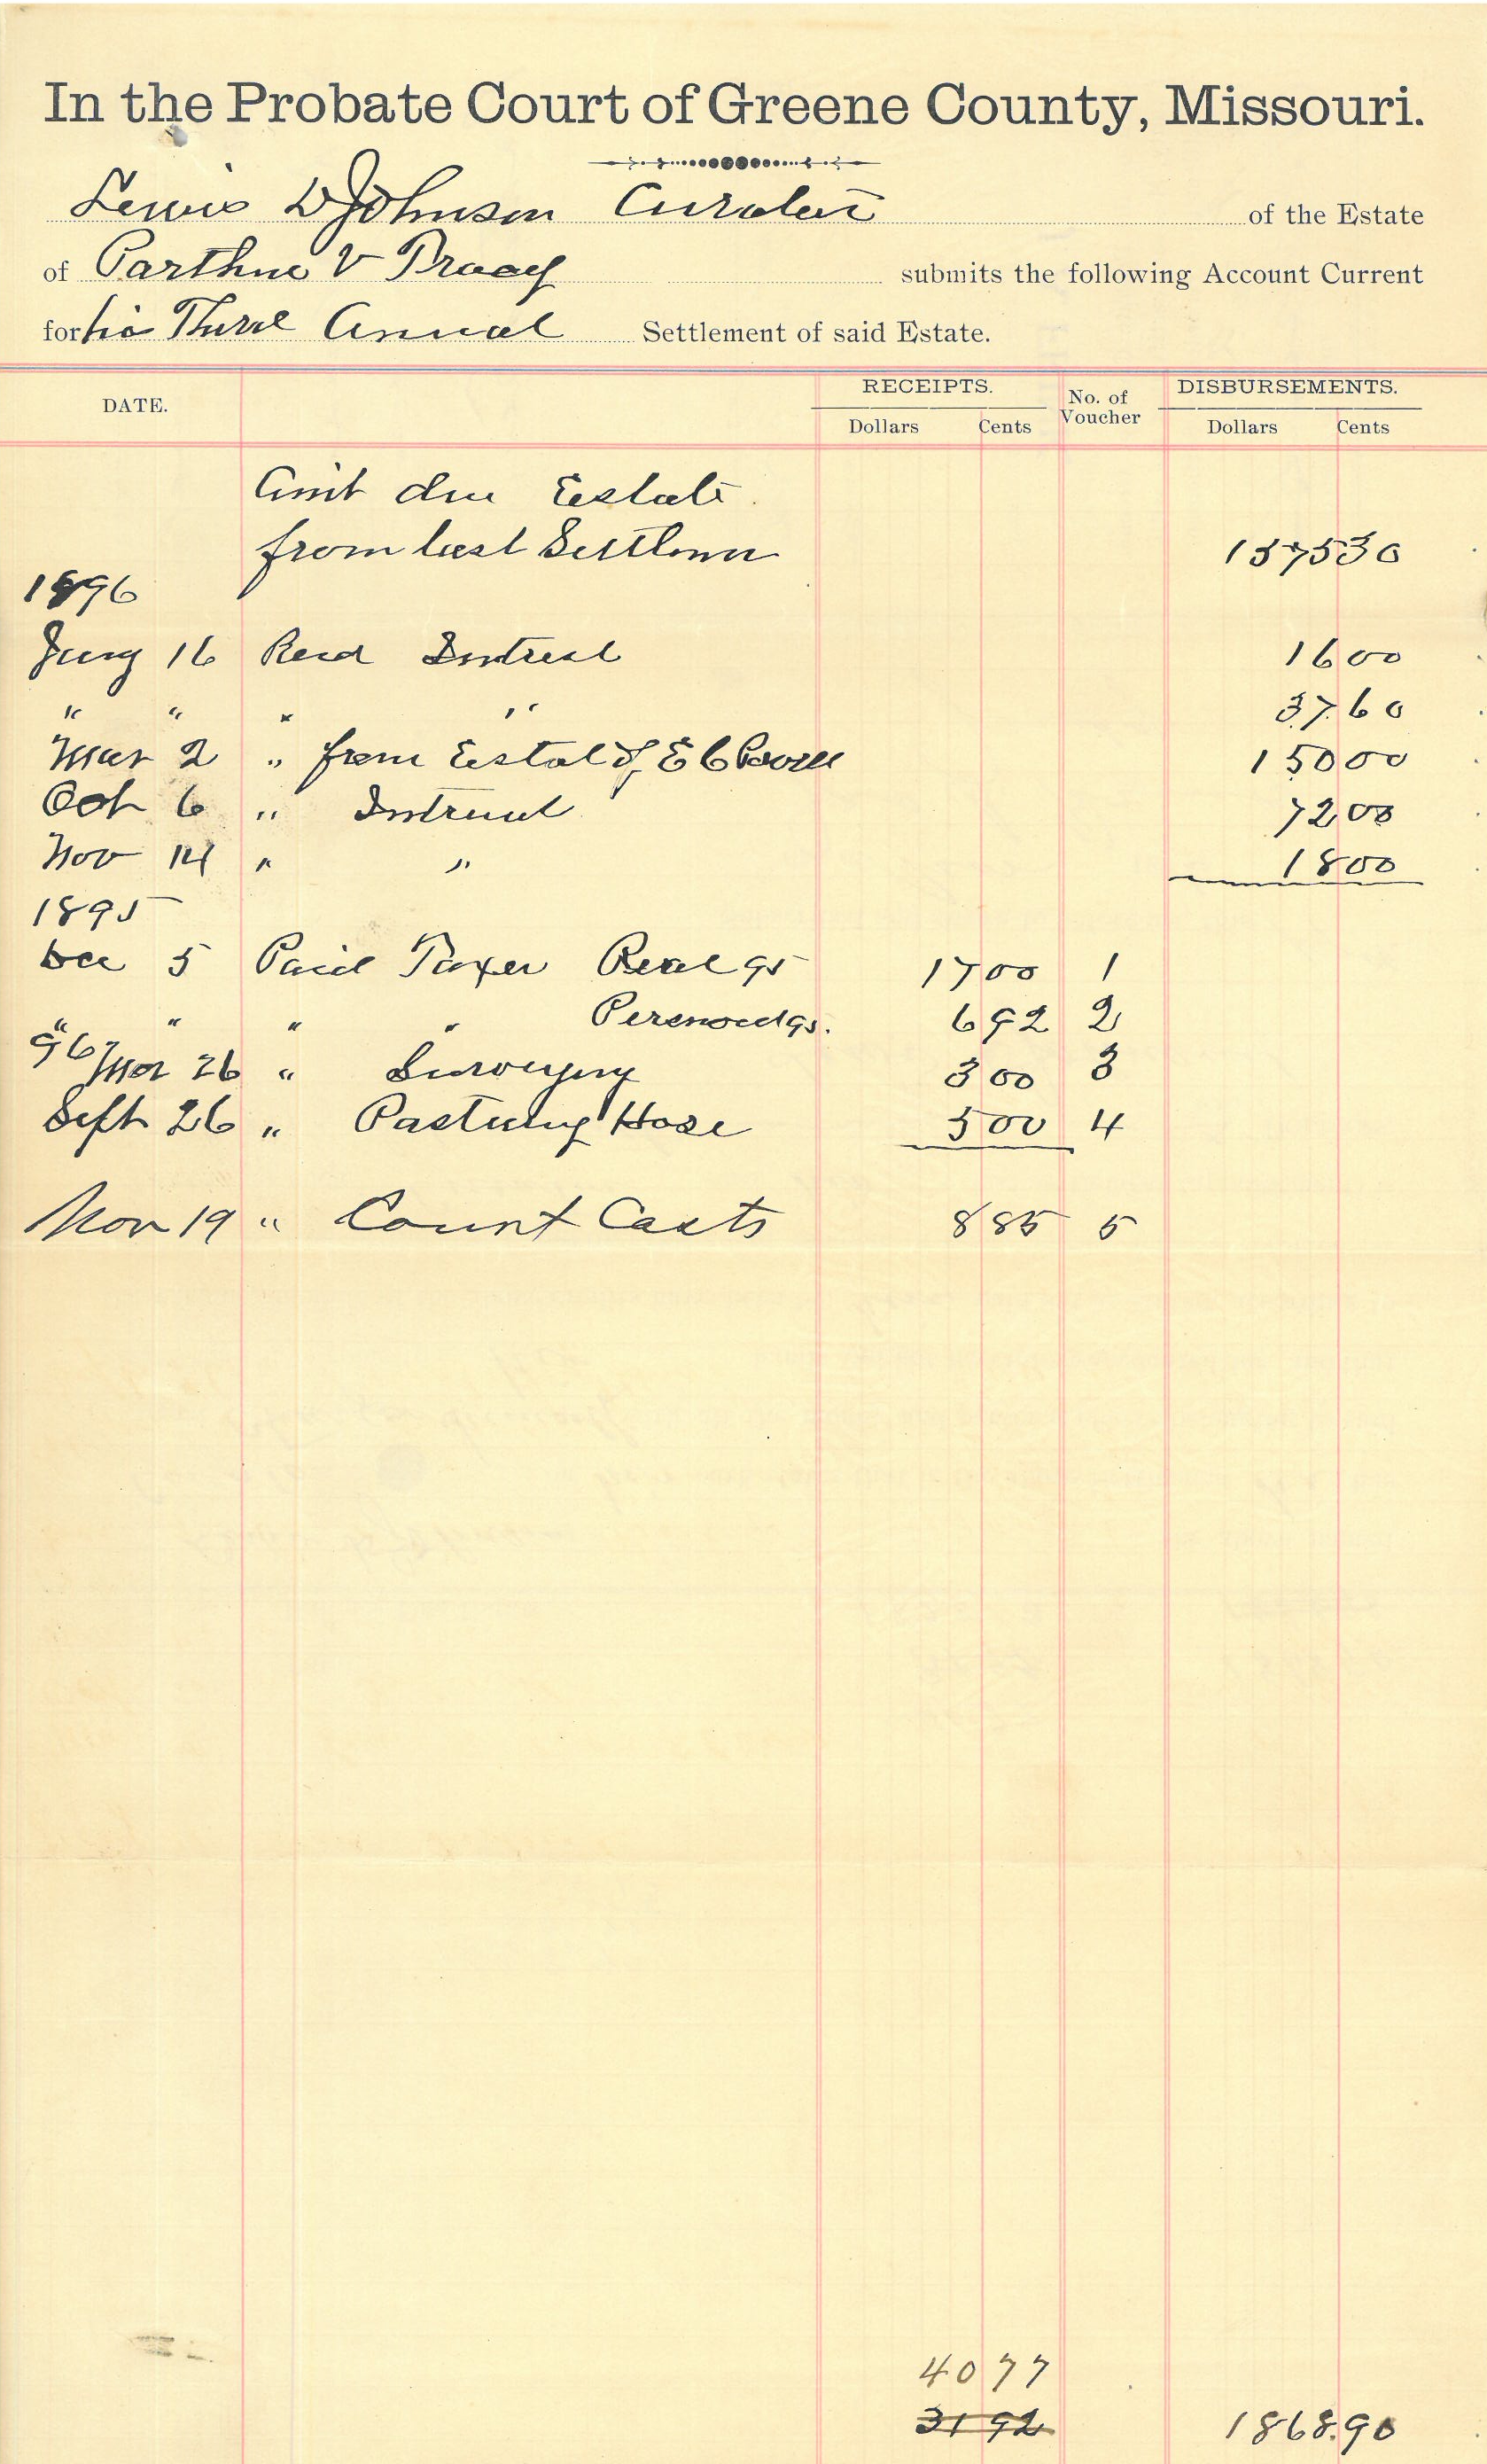 In the Probate Court of Greene County, Missouri.
Lewis D Johnson Curator of the Estate
of Parthne V Tracy submits the following Account Current
for his Third Annual Settlement of said Estate.
DATE. RECEIPTS. Dollars Cents No. of Voucher DISBURSEMENTS. Dollars Cents
Amt due Estate
from last Settlment 1575 30
1896
Jany 16 Recd Intrest 16 00
" " " " 37.60
Mar 2 " from Estate of E C Powell 150 00
Oct 6 " Intrest 72 00
Nov 14 " " 18 00
1895
Dec 5 Paid Taxes Real 95 17 00 1
" " " " Personal 95. 6 92 2
96 Mar 26 " Surveying 3 00 3
Sept 26 " Pasturing Hose 5 00 4
Nov 19 " Court Costs 8 85 5
40 77
31 92 1868.90